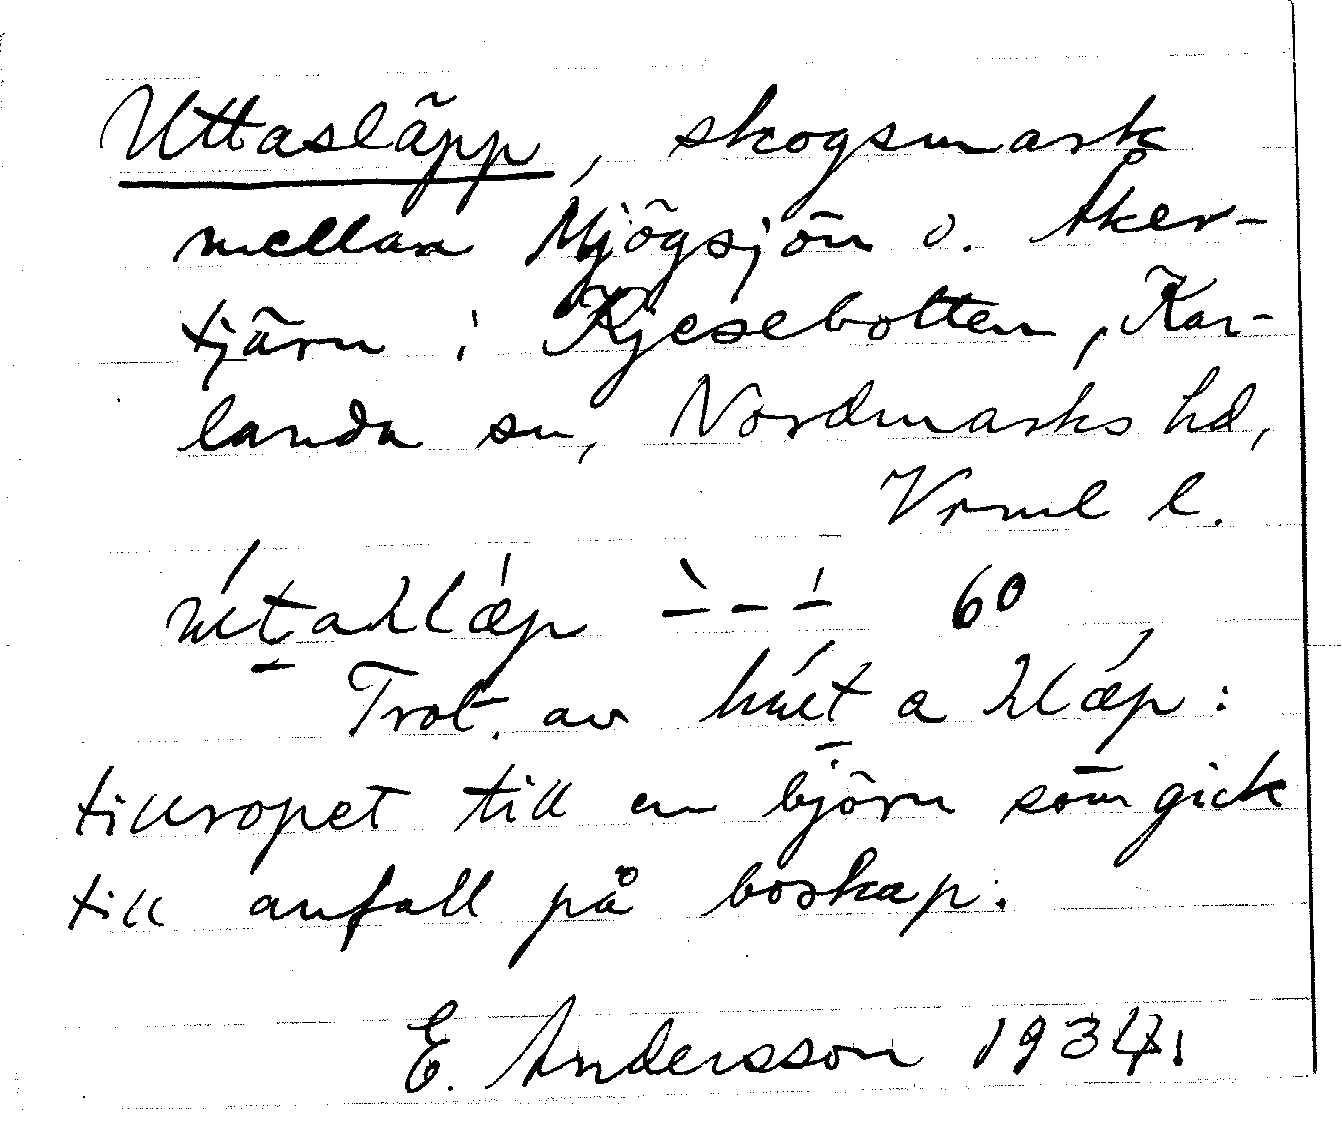 Uttasläpp, skogsmark
mellan Mjögsjön o. Åker-
tjärn i Kjesebotten, Kar-
landa sn, Nordmarks hd,
Vrml l.
60
Trol. av
tillropet till en björn som gick
till anfall på boskap.
E. Andersson 1934.